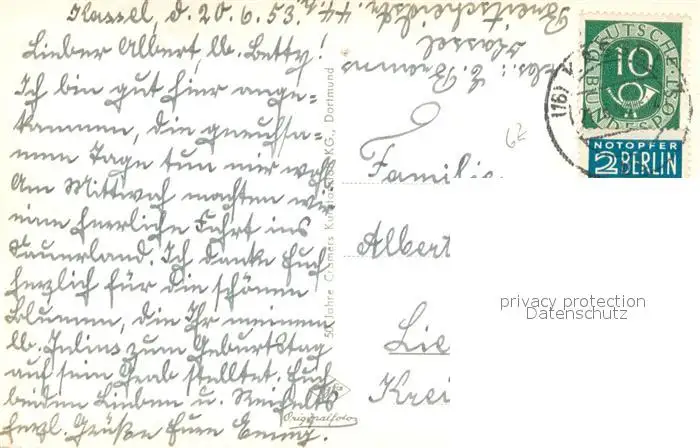 Kassel, d. 20.6.53.
Lieber Albert, lb. Betty!
Ich bin gut hier ange-
kommen, die geruhsa-
men Tage tun mir wohl
Am Mittwoch machten wir
eine herrliche Fahrt ins
Sauerland. Ich danke Euch
herzlich für die schönen
Blumen, die Ihr meinem
lb. Julius zum Geburtstag
auf sein Grab stelltet. Euch
beiden Lieben u.
herzl. Grüße Eure
Abs.: E.
Kassel
Breitscheidstr. 44
50 Jahre Cramers Kunstanstalt KG., Dortmund
Originalfoto
62
Familie
Albert
Lie
Krei
DEUTSCHE
10
BUNDESPOST
NOTOPFER
2 BERLIN
(16)
privacy protection
Datenschutz